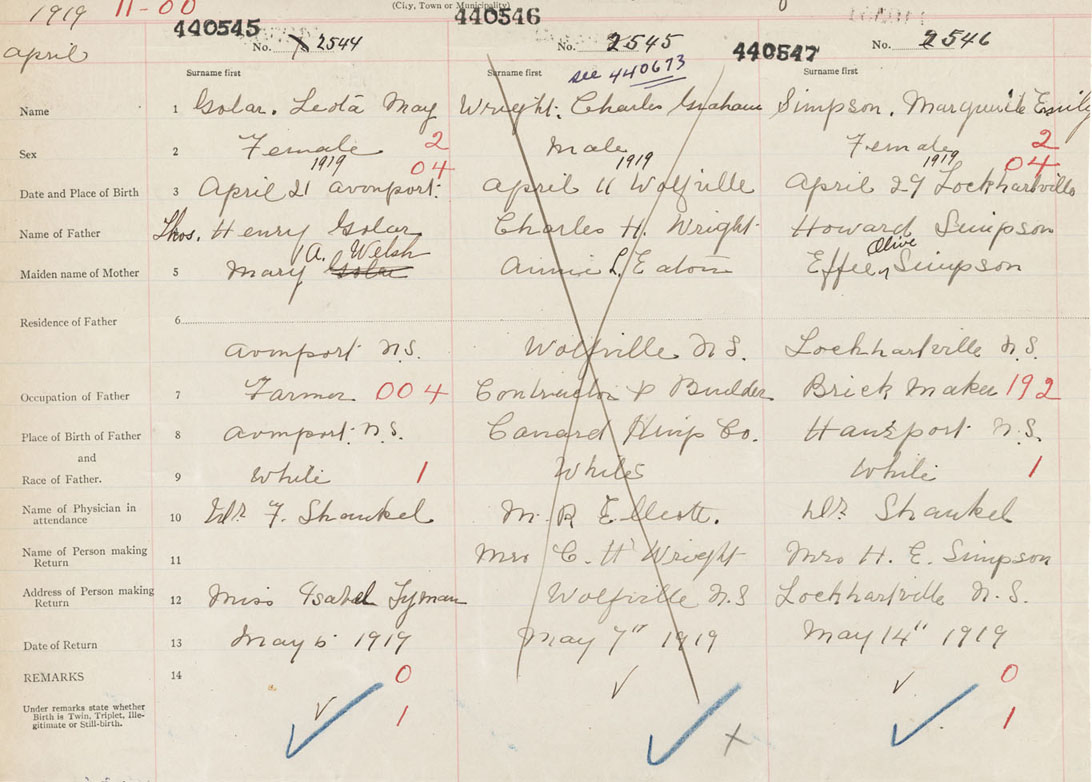 1919 11-00 (City, Town or Municipality)
April
440545 No. 2544
440546 No. 2545
see 440673
440547 No. 2546
Surname first Surname first Surname first
Name 1 Golar. Leota May Wright. Charles Graham Simpson. Marguerite Emily
Sex 2 Female 2 Male Female 2
1919 04 1919 1919 04
Date and Place of Birth 3 April 21 Avonport. April 11 Wolfville April 29 Lockhartville
Name of Father Thos. Henry Golar Charles H. Wright. Howard Simpson
A. Welsh Olive
Maiden name of Mother 5 Mary Golar Annie L. Eaton Effie Simpson
Residence of Father 6
Avonport N.S. Wolfville N.S. Lockhartville N.S.
Occupation of Father 7 Farmer 004 Contractor & Builder Brick Maker 192
Place of Birth of Father 8 Avonport. N.S. Canard Kings Co. Hantsport N.S.
and
Race of Father. 9 White 1 White White 1
Name of Physician in
attendance 10 Dr. F. Shankel M. R Elliott. Dr. Shankel
Name of Person making
Return 11 Mrs C. H Wright Mrs H. E. Simpson
Address of Person making
Return 12 Miss Isabel Lyman Wolfville N.S Lockhartville N.S.
Date of Return 13 May 6 1919 May 7" 1919 May 14" 1919
REMARKS 14 0 0
Under remarks state whether
Birth is Twin, Triplet, Ille-
gitimate or Still-birth. 1 1